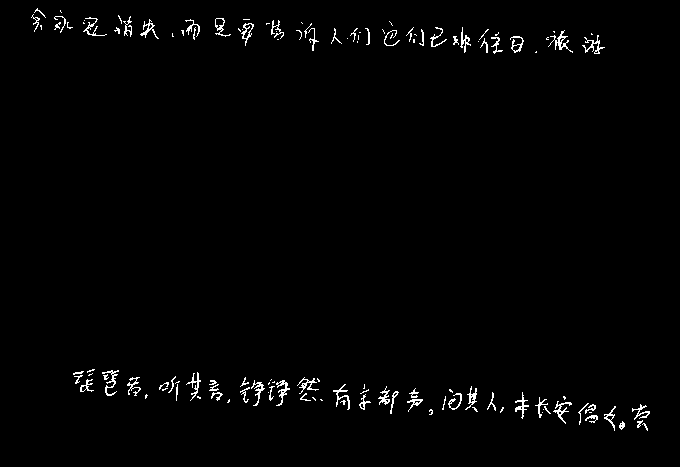 会永远消失，而是要告诉人们它们已非往日，旅游
琵琶者，听其音，铮铮然有京都声。问其人，本长安倡女。尝